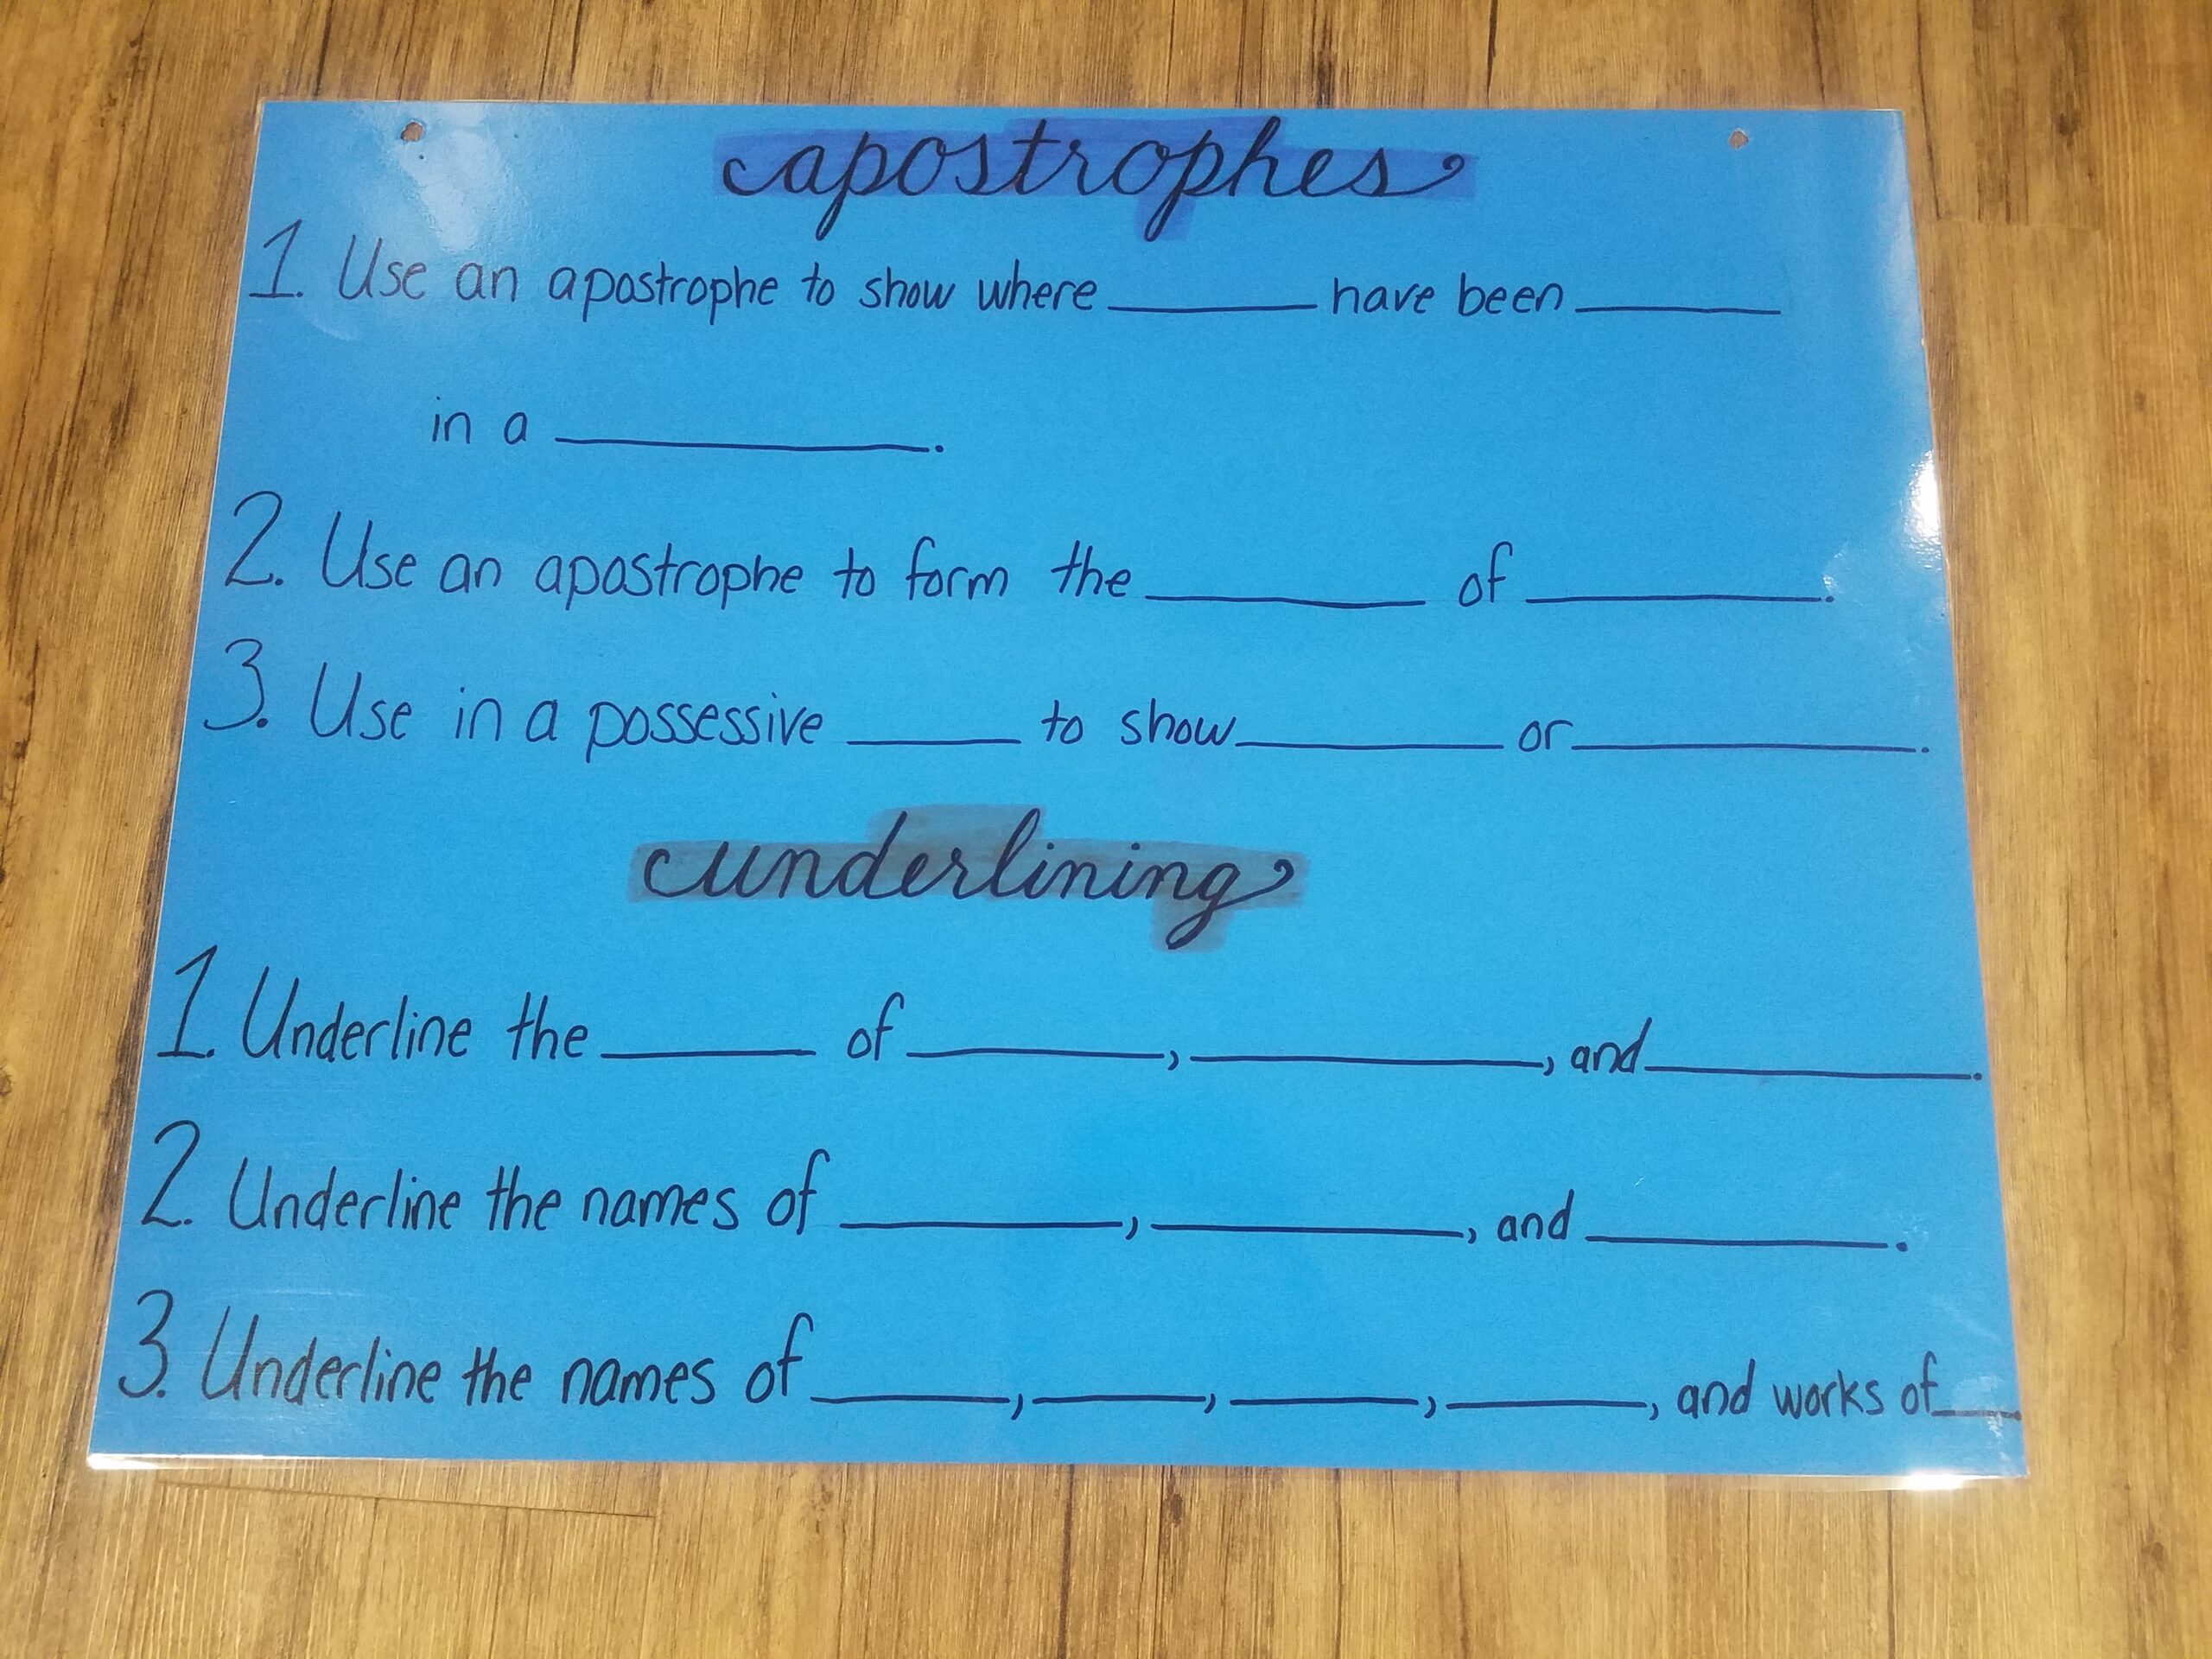 apostrophes
1. Use an apostrophe to show where ______ have been ______
in a ______.
2. Use an apostrophe to form the ______ of ______.
3. Use in a possessive ______ to show ______ or ______.
underlining
1. Underline the ______ of ______, ______, and ______.
2. Underline the names of ______, ______, and ______.
3. Underline the names of ______, ______, ______, ______, and works of ___.